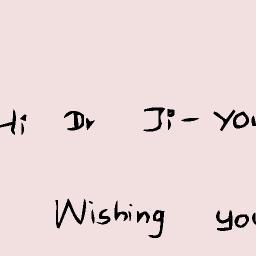 Hi Dr Ji- You
Wishing you